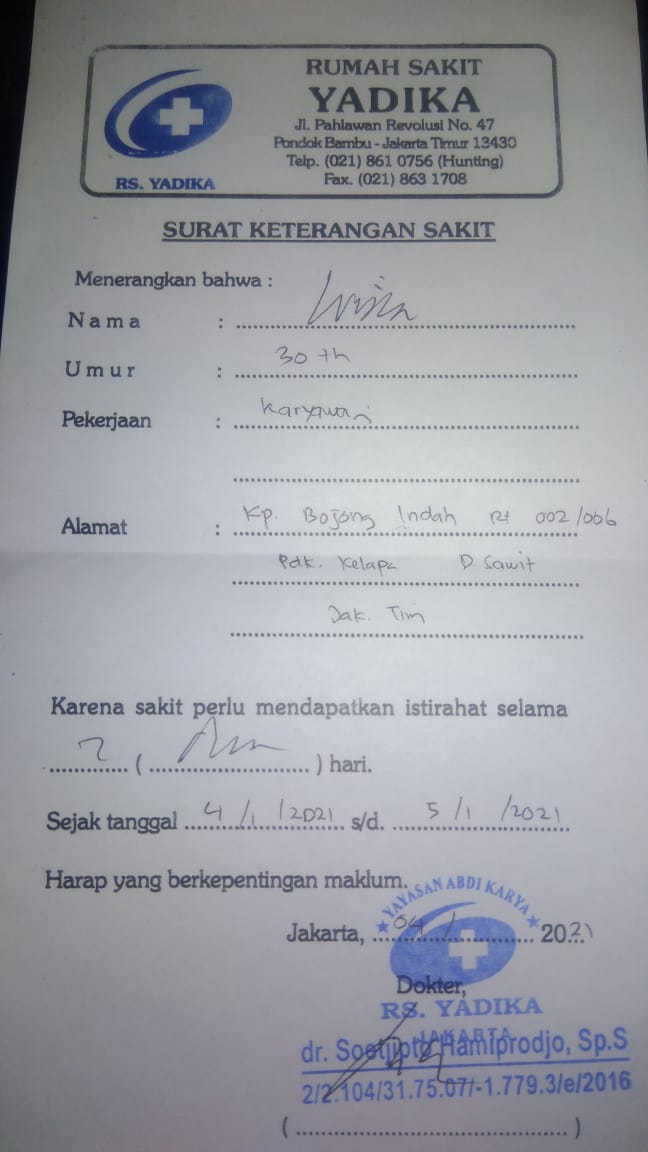 RUMAH SAKIT
YADIKA
Jl. Pahlawan Revolusi No. 47
Pondok Bambu - Jakarta Timur 13430
Telp. (021) 861 0756 (Hunting)
Fax. (021) 863 1708
RS. YADIKA
SURAT KETERANGAN SAKIT
Menerangkan bahwa :
Nama :
Umur : 30 th
Pekerjaan : Karyawan
Alamat : Kp. Bojong Indah Rt 002/006
Pdk. Kelapa D. Sawit
Jak. Tim
Karena sakit perlu mendapatkan istirahat selama
2 ( ) hari.
Sejak tanggal 4/1/2021 s/d. 5/1/2021
Harap yang berkepentingan maklum.
YAYASAN ABDI KARYA
Jakarta, 04/1 2021
Dokter,
RS. YADIKA
JAKARTA
dr. Soetjipto Hamiprodjo, Sp.S
2/2.104/31.75.07/-1.779.3/e/2016